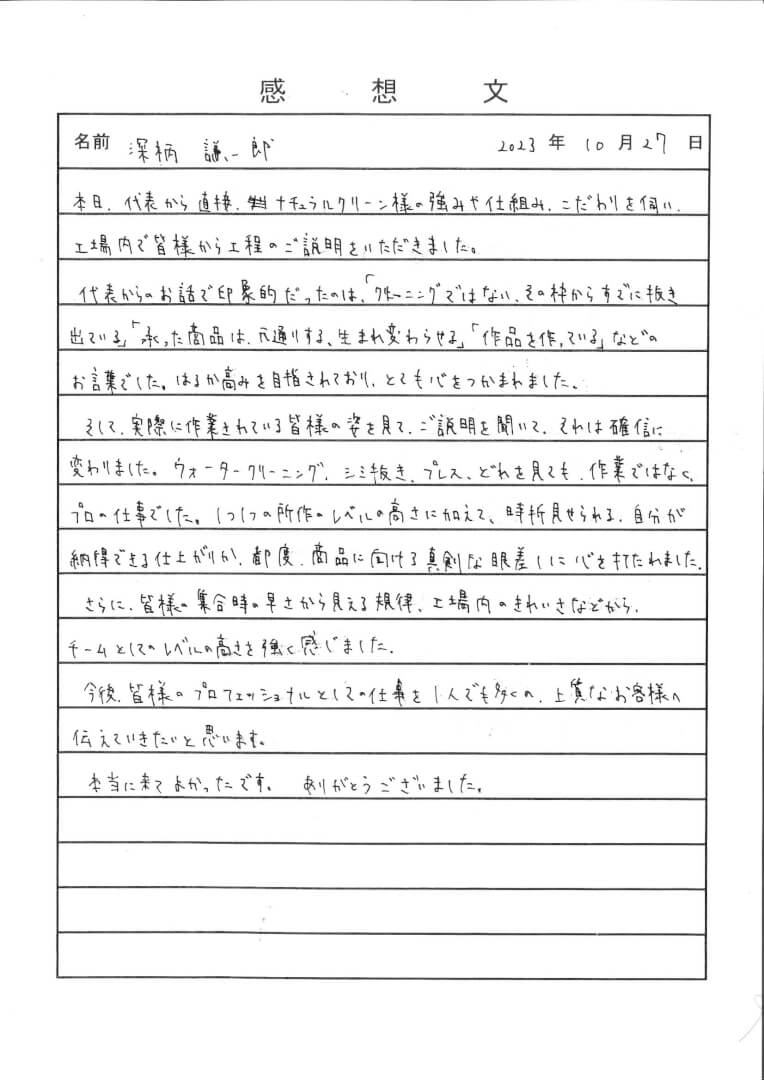 感想文
名前 深柄 謙一郎 2023年10月27日
本日、代表から直接、ナチュラルクリーン様の強みや仕組み、こだわりを伺い、
工場内で皆様から工程のご説明をいただきました。
代表からのお話で印象的だったのは、「クリーニングではない、その枠からすでに抜き
出ている」「承った商品は、元通りする、生まれ変わらせる」「作品を作っている」などの
お言葉でした。はるか高みを目指されており、とても心をつかまれました。
そして、実際に作業されている皆様の姿を見て、ご説明を聞いて、それは確信に
変わりました。ウォータークリーニング、シミ抜き、プレス、どれを見ても、作業ではなく、
プロの仕事でした。1つ1つの所作のレベルの高さに加えて、時折見せられる、自分が
納得できる仕上がりか、都度、商品に向ける真剣な眼差しに心を打たれました。
さらに、皆様の集合時の早さから見える規律、工場内のきれいさなどから、
チームとしてのレベルの高さを強く感じました。
今後、皆様のプロフェッショナルとしての仕事を1人でも多くの、上質なお客様へ
伝えていきたいと思います。
本当に来てよかったです。 ありがとうございました。